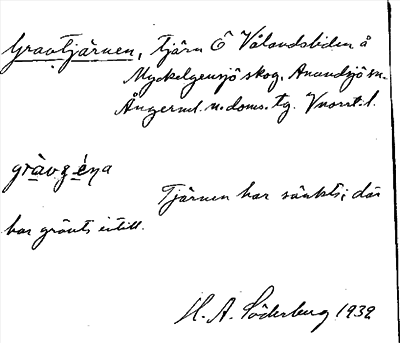 Gravtjärnen, tjärn Ö Vålandsliden å
Myckelgensjö skog, Anundsjö sn.
Ångerml. n. doms. tg. Vnorrl. l.
gràvʒéṇa
Tjärnen har sänkts; där
har grävts
H. A. Söderberg 1932